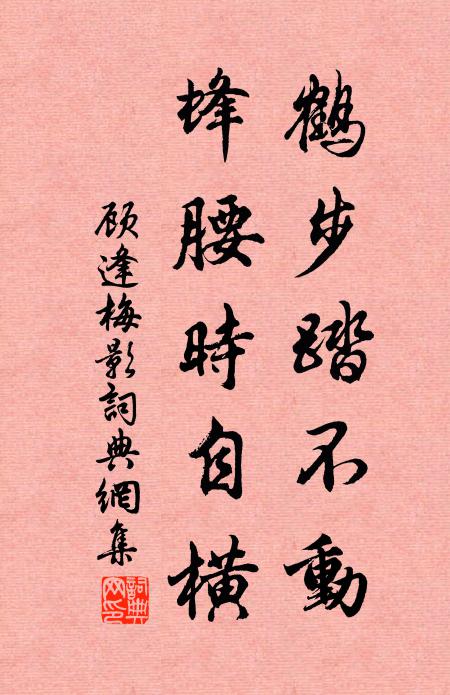 鶴步踏不動
蜂腰時自横
顾逢梅影詞典網集
詞典